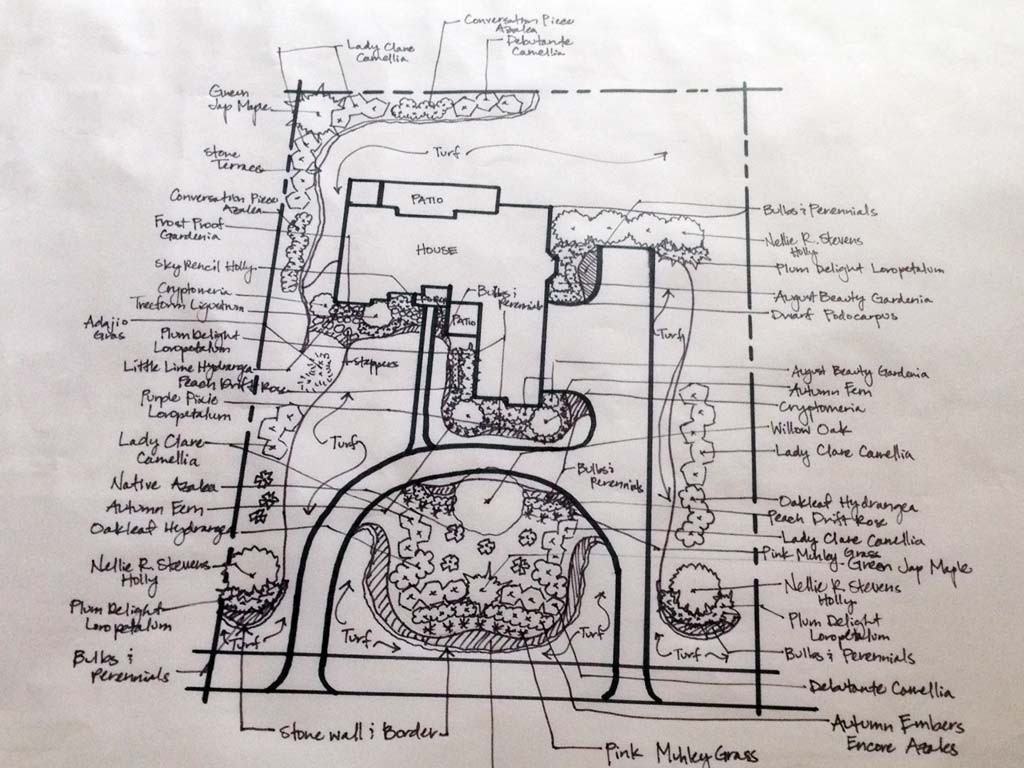 Conversation Piece
Azalea
Debutante
Camellia
Lady Clare
Camellia
Green
Jap Maple
Stone
Terrace
Turf
Conversation Piece
Azalea
Frost Proof
Gardenia
Sky Pencil Holly
Cryptomeria
Treeform Ligustrum
Adajio
Gras
Plum Delight
Loropetalum
Little Lime Hydranga
Peach Drift Rose
Purple Pixie
Loropetalum
Lady Clare
Camellia
Native Azalea
Autumn Fern
Oakleaf Hydranga
Nellie R. Stevens
Holly
Plum Delight
Loropetalum
Bulbs &
Perennials
PATIO
HOUSE
PORCH
PATIO
Bulbs &
Perennials
steppers
Turf
Turf
Bulbs &
Perennials
Turf
Turf
Turf
Turf
Stone wall & Border
Bulbs & Perennials
Nellie R. Stevens
Holly
Plum Delight Loropetalum
August Beauty Gardenia
Dwarf Podocarpus
August Beauty Gardenia
Autumn Fern
Cryptomeria
Willow Oak
Lady Clare Camellia
Oakleaf Hydrangea
Peach Drift Rose
Lady Clare Camellia
Pink Muhley Grass
Green Jap Maple
Nellie R. Stevens
Holly
Plum Delight
Loropetalum
Bulbs & Perennials
Debutante Camellia
Autumn Embers
Encore Azales
Pink Muhley Grass